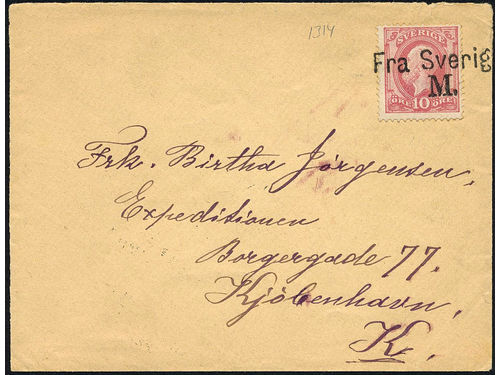 1314
SVERIGE
Fra Sverig
M.
ÖRE 10 ÖRE
Frk. Birtha Jørgensen,
Expeditionen
Borgergade 77.
Kjöbenhavn,
K.